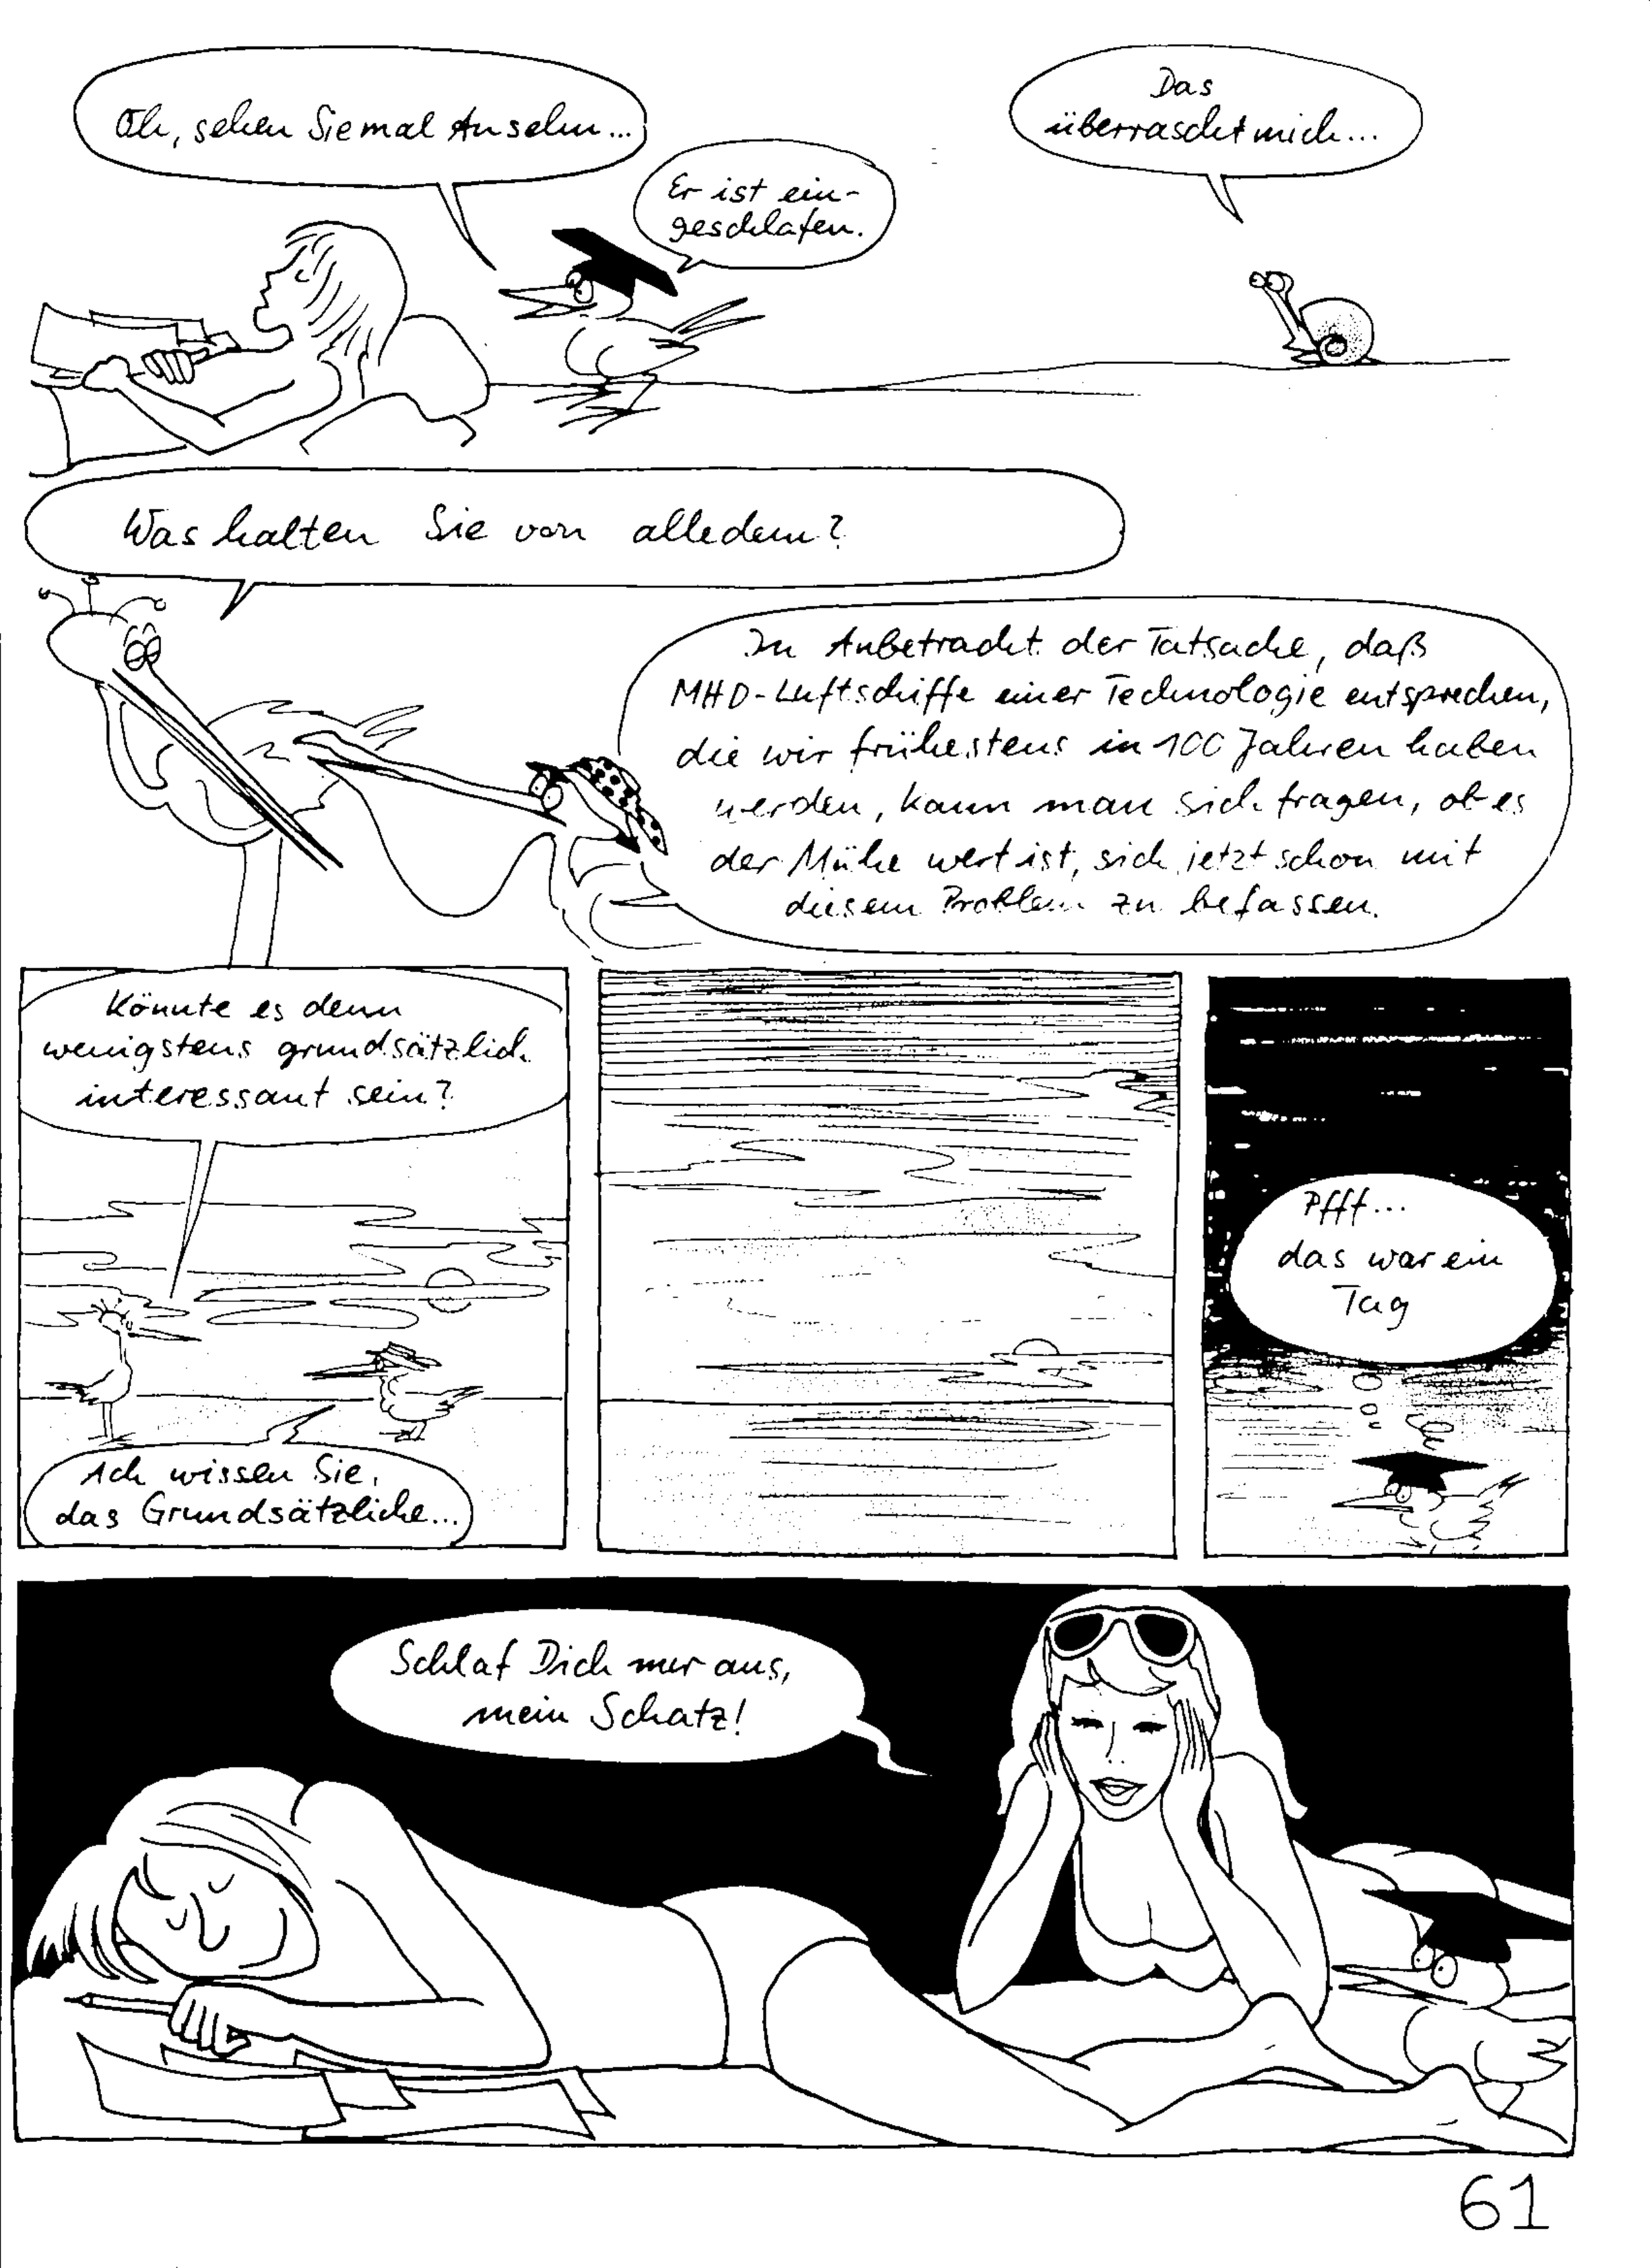 Oh, sehen Sie mal Anselm...
Er ist ein-
geschlafen.
Das
überrascht mich...
Was halten Sie von alledem?
In Anbetracht der Tatsache, daß
MHD-Luftschiffe einer Technologie entsprechen,
die wir frühestens in 100 Jahren haben
werden, kann man sich fragen, ob es
der Mühe wert ist, sich jetzt schon mit
diesem Problem zu befassen.
Könnte es denn
wenigstens grundsätzlich
interessant sein?
Ach wissen Sie,
das Grundsätzliche...
Pfff...
das war ein
Tag
Schlaf Dich nur aus,
mein Schatz!
61